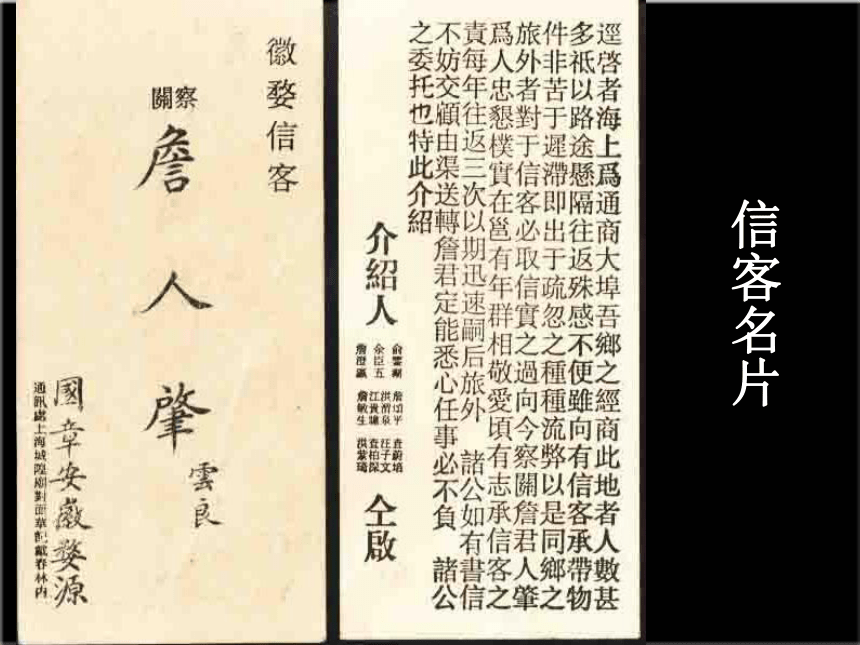 信客名片
逕啓者海上爲通商大埠吾鄉之經商此地者人數甚
多祇以路途懸隔往返殊感不便雖向有信客承帶物
件非苦于遲滯即出于疏忽之種種流弊以是同鄉之
旅外者對于信客必取信實之過向今察關詹君人肇
爲人忠懇樸實在邕有年群相敬愛頃有志承信客之
責每年往返三次以期迅速嗣后旅外 諸公如有書信
不妨交顧由渠送轉詹君定能悉心任事必不負 諸公
之委托也特此介紹
介紹人
詹頌平 查蔚培
余臣五 汪子文
查柏深
詹澄瀛 詹敏生
仝啟
徽婺信客
察關
詹人肇
雲良
國章安徽婺源
通訊處上海城隍廟對面華記戴春林內